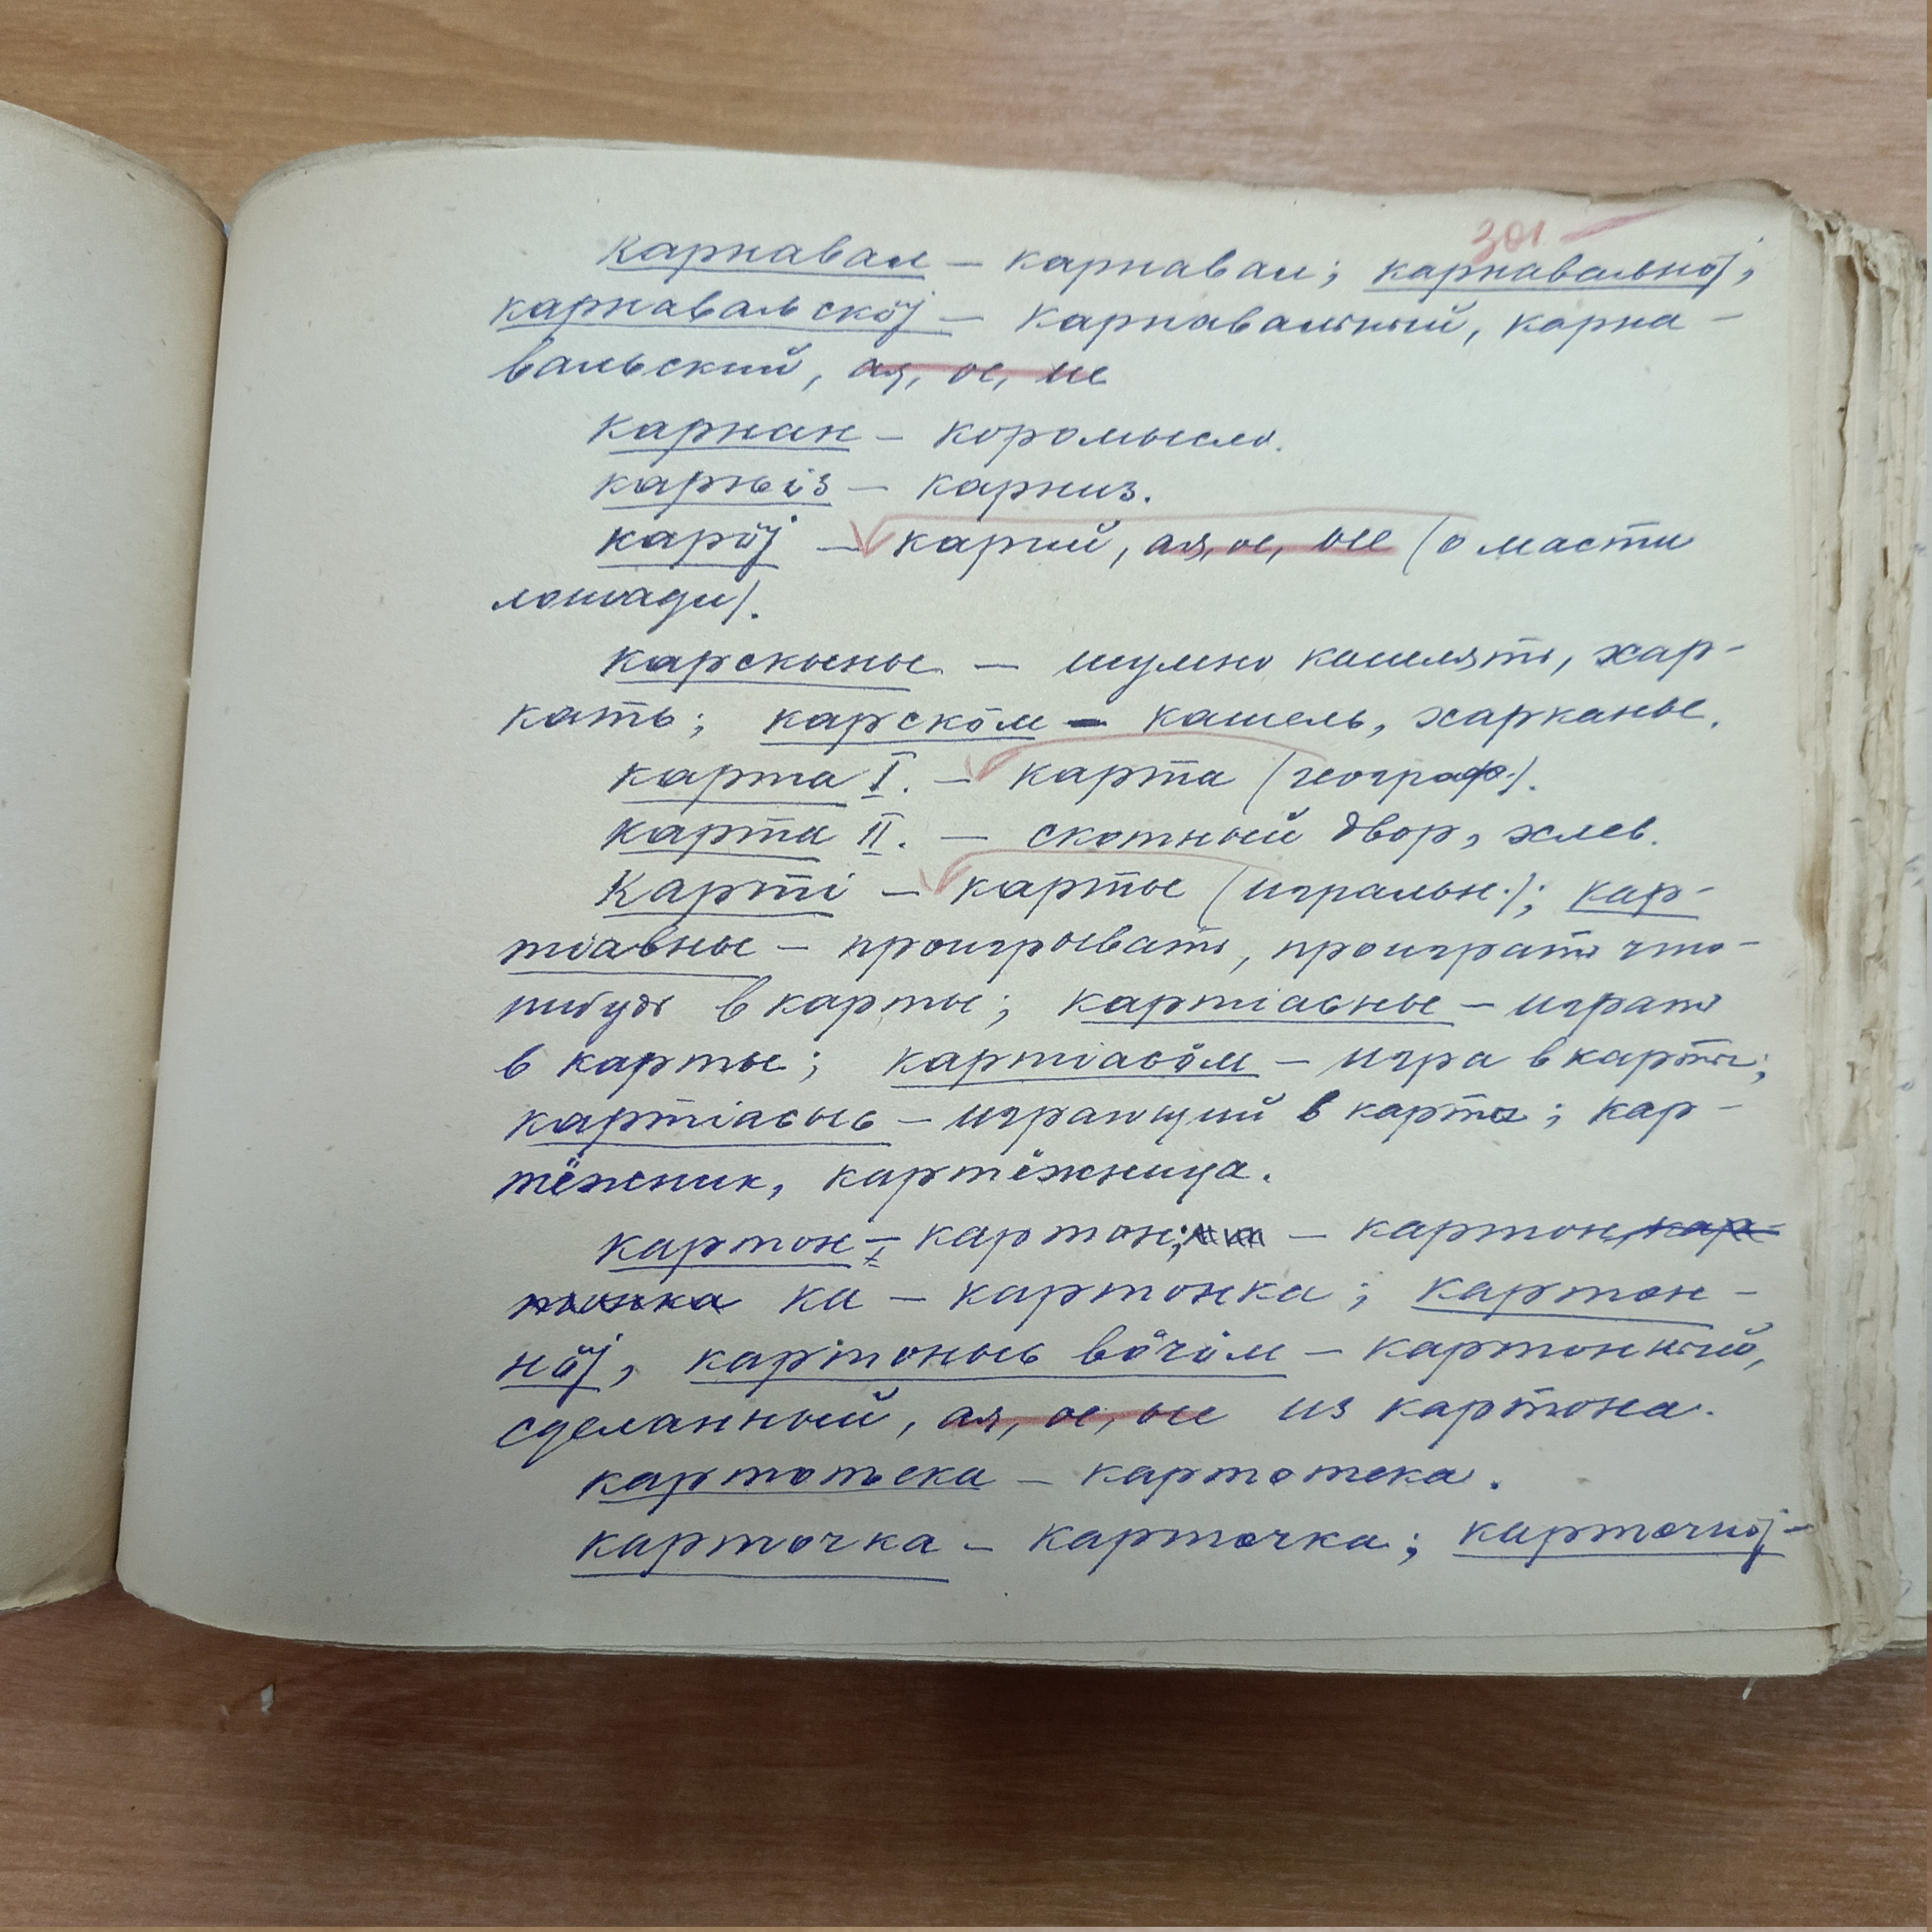 301
карнавал – карнавал; карнавальнӧј,
карнавальскӧј – карнавальный, карна-
вальский, ая, ое, ие
карнан – коромысло.
карњіз – карниз.
карӧј – карий, ая, ое, ие (о масти
лошади).
карскыны – шумно кашлять, хар-
кать; карскӧм – кашель, харканье.
карта I. – карта (географ.).
карта II. – скотный двор, хлев.
Карті – карты (игральн.); кар-
тіавны – проигрывать, проиграть что-
нибудь в карты; картіасны – играть
в карты; картіасӧм – игра в карты;
картіасыс – играющий в карты; кар-
тёжник, картёжница.
картон – картон; – картон, кар-
тонка ка – картонка; картон-
нӧј, картоныс вӧчӧм – картонный,
сделанный, ая, ое, ые из картона.
картотека – картотека.
карточка – карточка; карточнӧј –